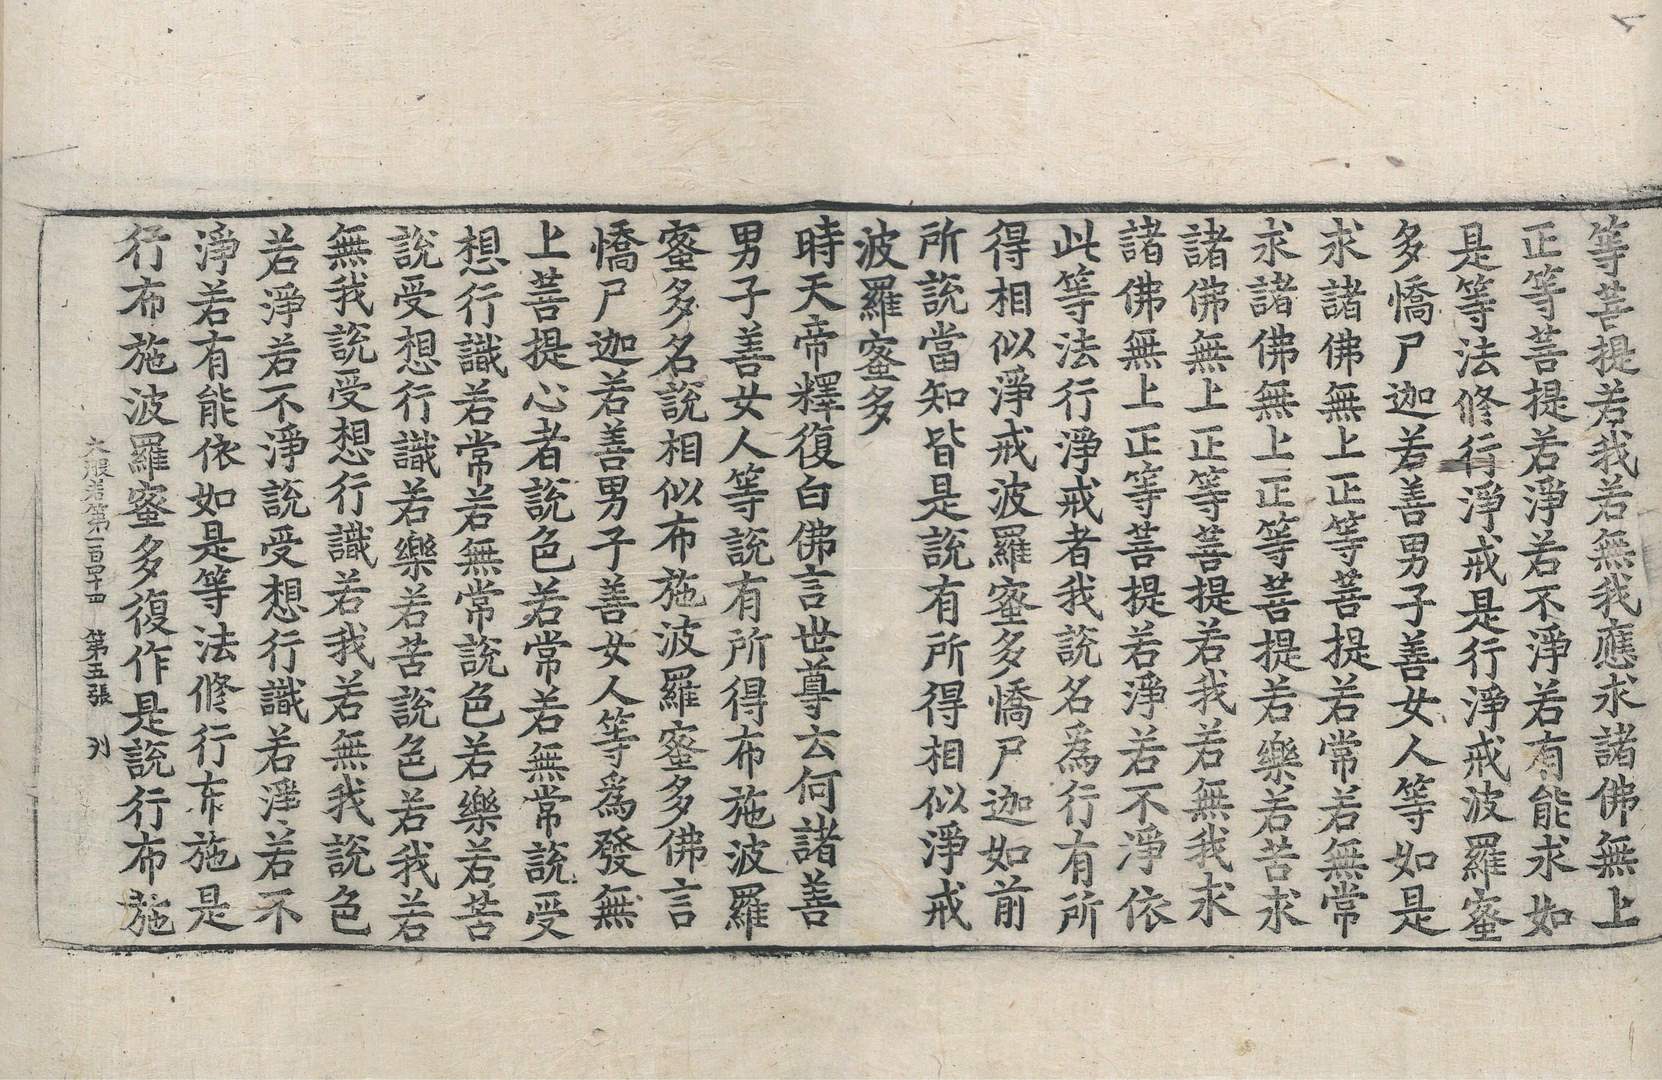 等菩提若我若無我應求諸佛無上
正等菩提若淨若不淨若有能求如
是等法修行淨戒是行淨戒波羅蜜
多憍尸迦若善男子善女人等如是
求諸佛無上正等菩提若常若無常
求諸佛無上正等菩提若樂若苦求
諸佛無上正等菩提若我若無我求
諸佛無上正等菩提若淨若不淨依
此等法行淨戒者我說名爲行有所
得相似淨戒波羅蜜多憍尸迦如前
所說當知皆是說有所得相似淨戒
波羅蜜多
時天帝釋復白佛言世尊云何諸善
男子善女人等說有所得布施波羅
蜜多名說相似布施波羅蜜多佛言
憍尸迦若善男子善女人等爲發無
上菩提心者說色若常若無常說受
想行識若常若無常說色若樂若苦
說受想行識若樂若苦說色若我若
無我說受想行識若我若無我說色
若淨若不淨說受想行識若淨若不
淨若有能依如是等法修行布施是
行布施波羅蜜多復作是說行布施
大般若第一百四十四 第五張 刋